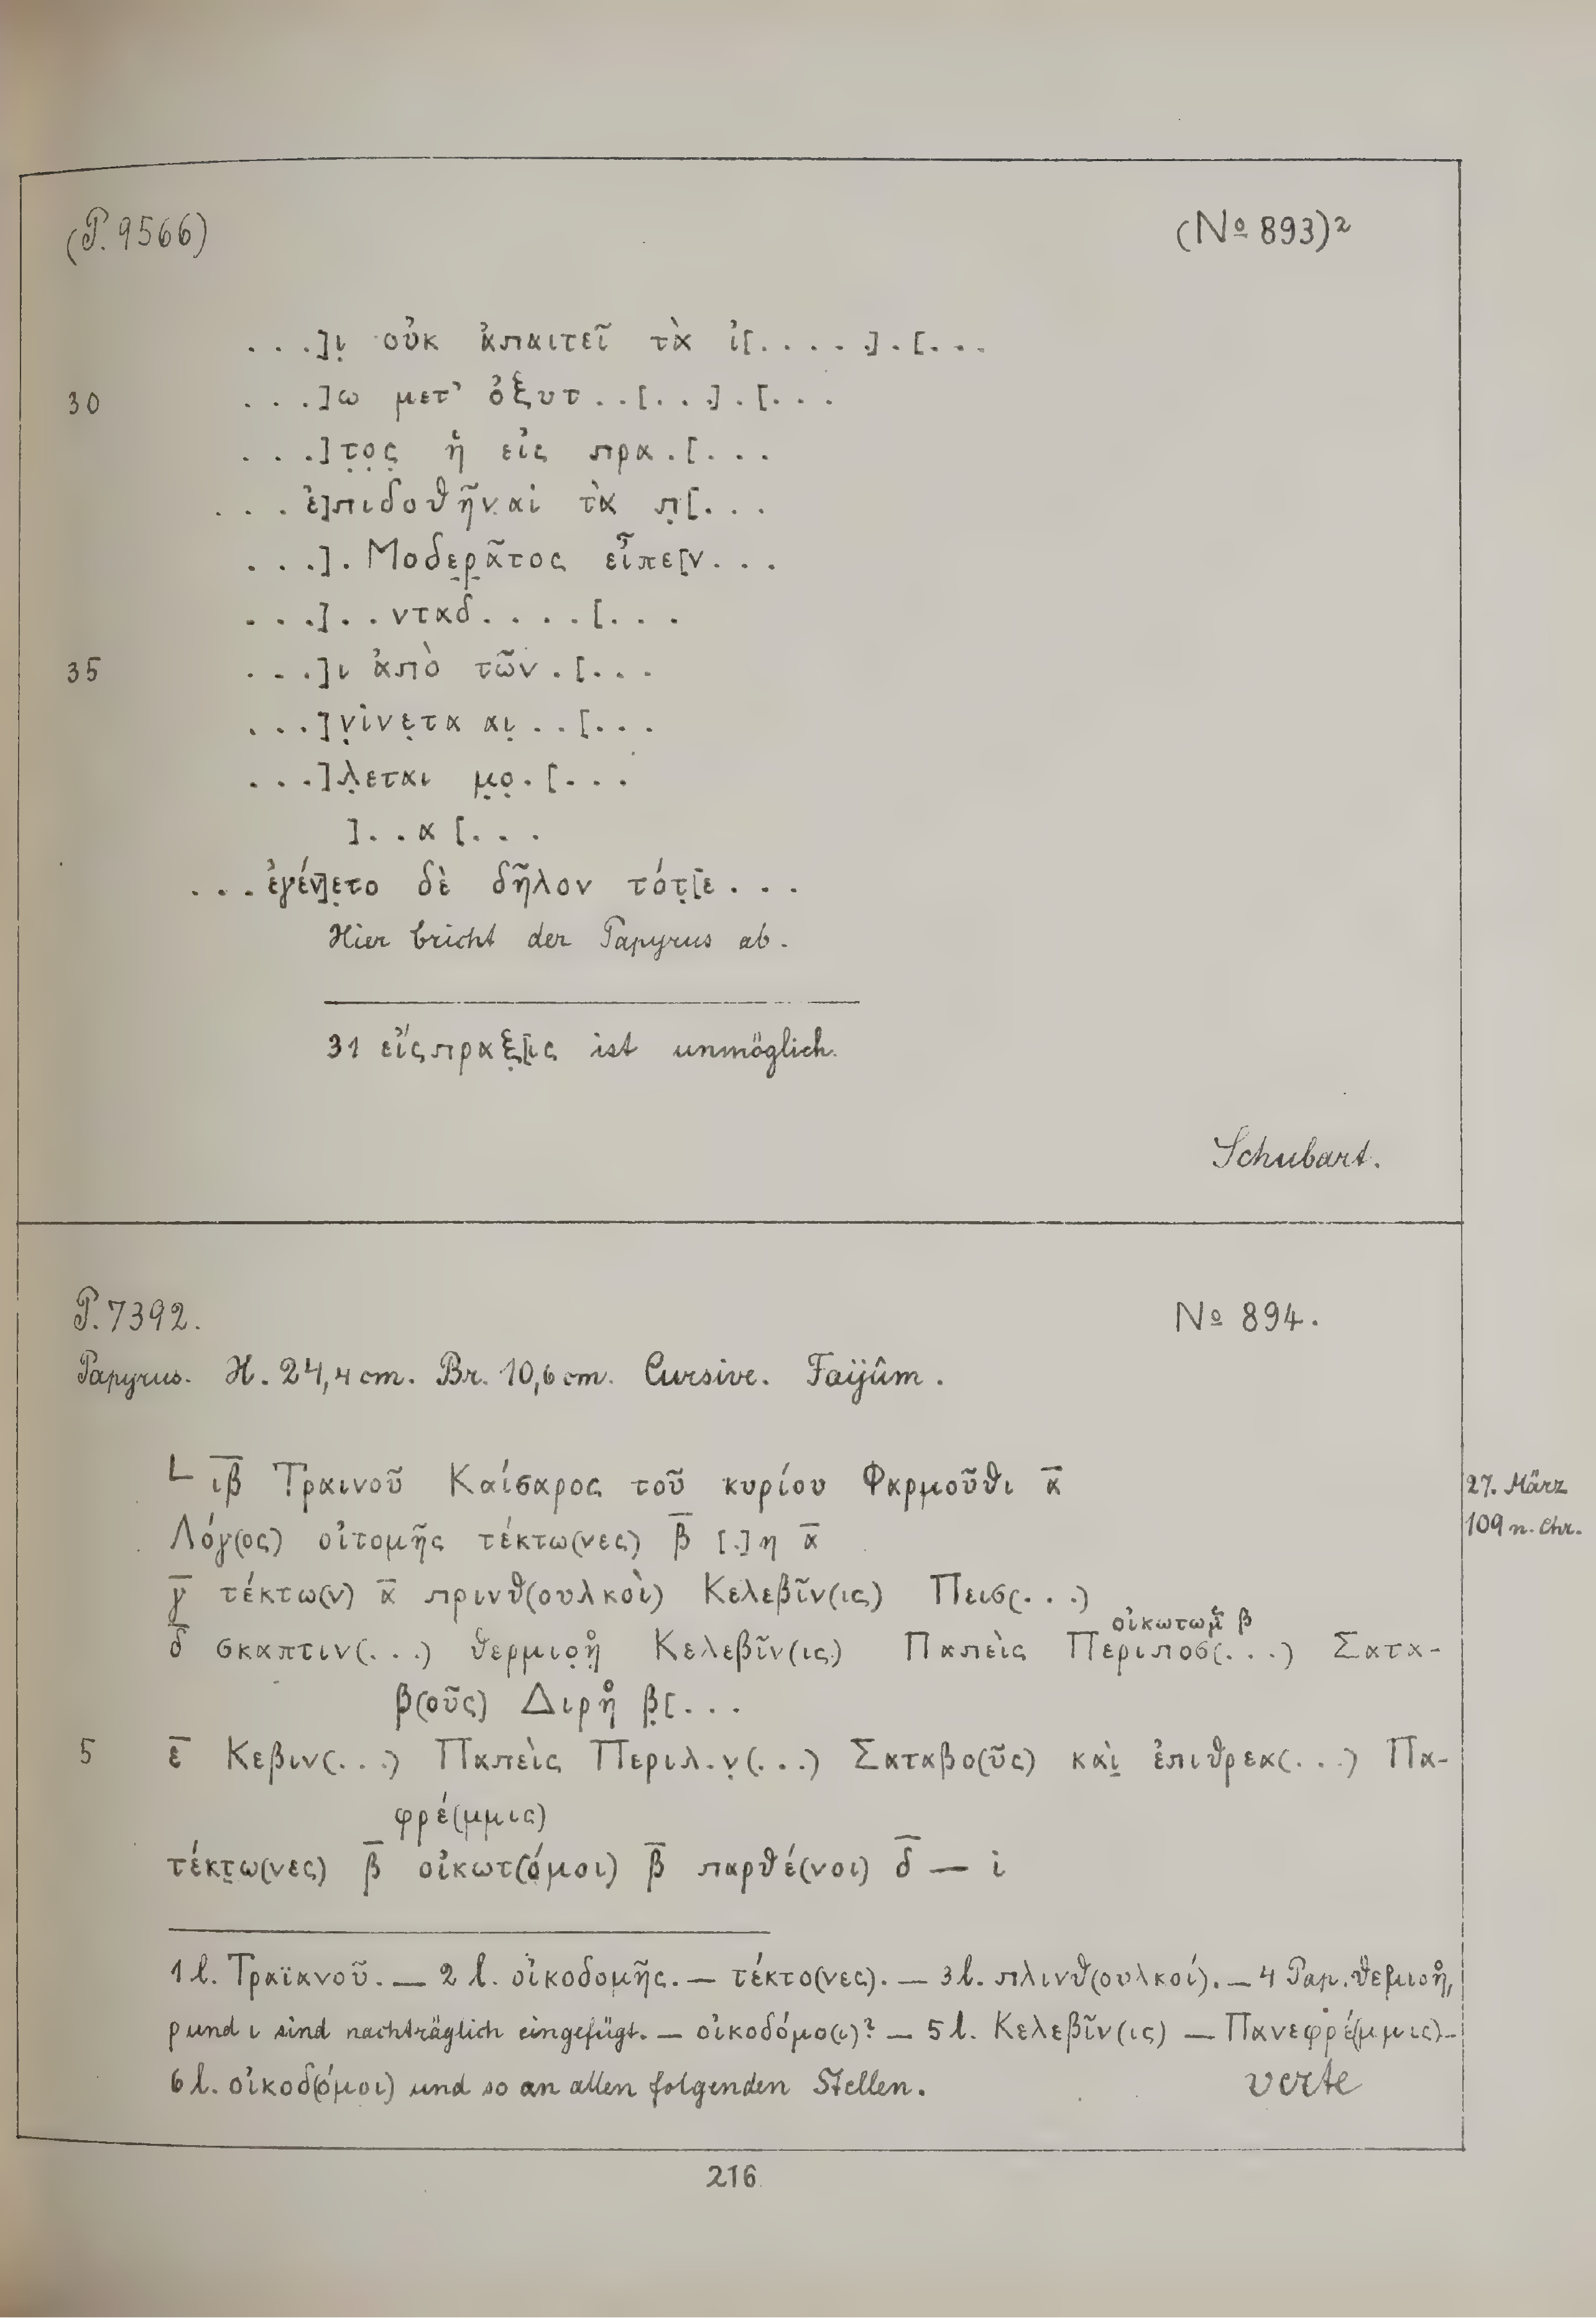 (P. 9566) (No 893)²
. . .]ι̣ οὐκ ἀπαιτεῖ τὰ ἰ[. . . . .] . [. . .
30 . . .]ω μετ’ ὀξυτ . . [. . .] . [. . .
. . .]τ̣ο̣ς̣ ἢ εἰς πρα . [. . .
. . . ἐ]πιδοθῆναι τὰ π̣[. . .
. . .] . Μοδε̣ρ̣ᾶτος εἶπε[ν . . .
. . .] . . νταδ . . . . [. . .
35 . . .]ι ἀπὸ τῶν . [. . .
. . .]ν̣ίνε̣τα αι̣ . . [. . .
. . .]λ̣εται μ̣ο̣ . [. . .
] . . α [. . .
. . . ἐγέν]ε̣το δὲ δῆλον τότ̣[ε . . .
Hier bricht der Papyrus ab.
31 εἴςπραξ̣[ις ist unmöglich.
Schubart.
P. 7392. No 894.
Papyrus. H. 24,4 cm. Br. 10,6 cm. Cursive. Faijûm.
L ι̅β̅ Τραινοῦ Καίσαρος τοῦ κυρίου Φαρμοῦθι α̅ 27. März
109 n. Chr.
Λόγ(ος) οἰτομῆς τέκτω(νες) β̅ [.]η α̅
γ̅ τέκτω(ν) α̅ πρινθ(ουλκοὶ) Κελεβῖν(ις) Πεισ(. . .)
οἰκωτωμ β
δ̅ σκαπτιν(. . .) θερμιο̣η̣̊ Κελεβῖν(ις) Παπεὶς Περιποσ(. . .) Σατα-
β(οῦς) Διρη̊ β̣[. . .
5 ε̅ Κεβιν(. . .) Παπεὶς Περιλ.ν̣(. . .) Σαταβο(ῦς) καὶ̣ ἐπιθρεα(. . .) Πα-
φρέ(μμις)
τέκτ̣ω(νες) β̅ οἰκωτ(όμοι) β̅ παρθέ(νοι) δ̅ — ι
1 l. Τραϊανοῦ. — 2 l. οἰκοδομῆς. — τέκτο(νες). — 3 l. πλινθ(ουλκοί). — 4 Pap. θεμιοη̊,
ρ und ι sind nachträglich eingefügt. — οἰκοδόμο(ι)? — 5 l. Κελεβῖν(ις) — Πανεφρέ(μμις) —
6 l. οἰκοδ(όμοι) und so an allen folgenden Stellen. verte
216